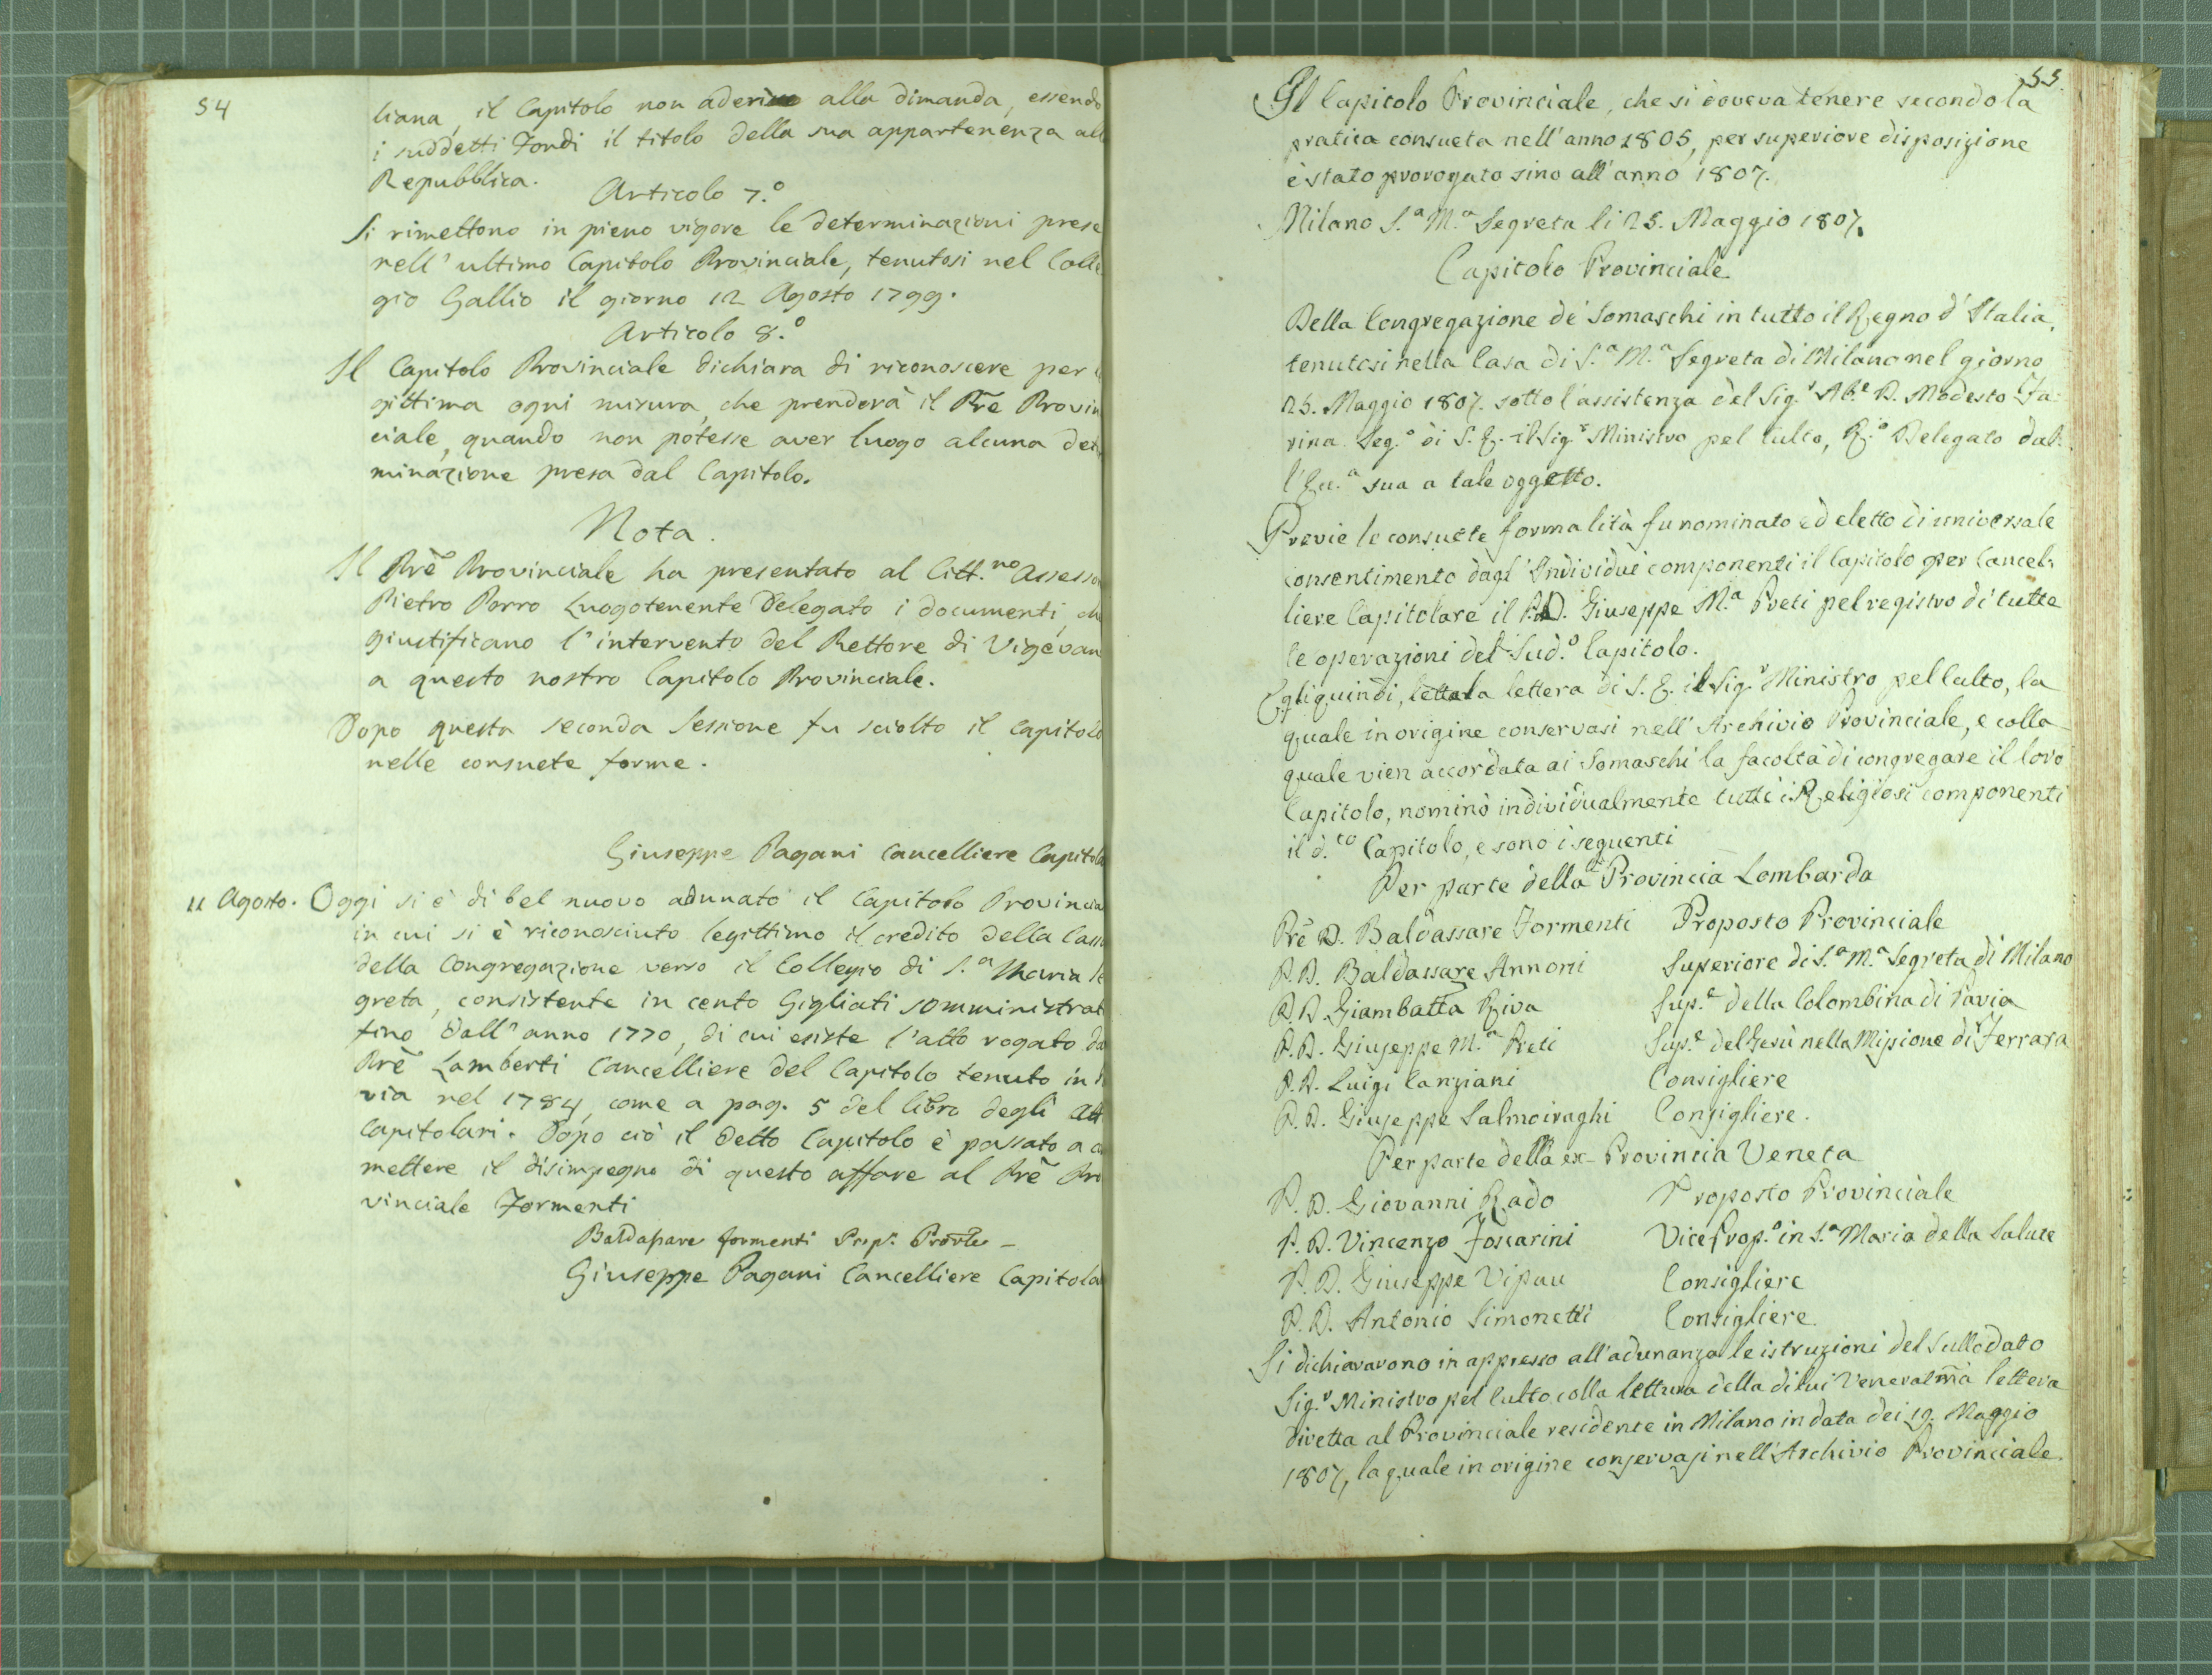 54
liana, il Capitolo non aderisce alla dimanda, essendo
i suddetti Fondi il titolo della sua appartenenza all
Repubblica.
Articolo 7.º
Si rimettono in pieno vigore le determinazioni prese
nell' ultimo Capitolo Provinciale, tenutosi nel Colle
gio Gallio il giorno 12 Agosto 1799.
Articolo 8.º
Il Capitolo Provinciale dichiara di riconoscere per
gittima ogni misura, che prenderà il Prẽ Provin
ciale, quando non potesse aver luogo alcuna deter
minazione presa dal Capitolo.
Nota.
Il Prẽ Provinciale ha presentato al Citt.no Assesso
Pietro Porro Luogotenente Delegato i documenti, che
giustificano l' intervento del Rettore di Vigevan
a questo nostro Capitolo Provinciale.
Dopo questa seconda Sessione fu sciolto il Capitolo
nelle consuete forme.
Giuseppe Pagani Cancelliere Capitola
11 Agosto. Oggi si è di bel nuovo adunato il Capitolo Provincia
in cui si è riconosciuto legittimo il credito della Cassa
della Congregazione verso il Collegio di S.a Maria Se
greta, consistente in cento Gigliati somministrat
fino dall' anno 1770, di cui esiste l'atto rogato da
Prẽ Lamberti Cancelliere del Capitolo tenuto in
via nel 1784, come a pag. 5 del libro degli Att
Capitolari. Dopo ciò il detto Capitolo è passato a
mettere il disimpegno di questo affare al Prẽ Pro
vinciale Formenti
Baldassare Formenti Prep. Provle
Giuseppe Pagani Cancelliere Capitola
55.
Il Capitolo Provinciale, che si doveva tenere secondo la
pratica consueta nell' anno 1805, per superiore disposizione
è stato prorogato sino all' anno 1807.
Milano S.a M.a Segreta li 25. Maggio 1807.
Capitolo Provinciale
Della Congregazione de' Somaschi in tutto il Regno d' Italia,
tenutosi nella Casa di S.a M.a Segreta di Milano nel giorno
25. Maggio 1807. sotto l'assistenza del Sig.r Ab.e D. Modesto Fa-
rina Seg.o di S. E. il Sig.r Ministro pel Culto, R.o Delegato dal-
l'Ec.a sua a tale oggetto.
Previe le consuete formalità fu nominato ed eletto di universale
consentimento dagl' Individui componenti il Capitolo per Cancel-
liere Capitolare il P. D. Giuseppe M.a Preti pel registro di tutte
le operazioni del Sud.o Capitolo.
Egli quindi, letta la lettera di S. E. il Sig.r Ministro pel Culto, la
quale in origine conservasi nell' Archivio Provinciale, e colla
quale vien accordata ai Somaschi la facoltà di congregare il loro
Capitolo, nominò individualmente tutti i Religiosi componenti
il d.to Capitolo, e sono i seguenti
Per parte della Provincia Lombarda
Prẽ D. Baldassare Formenti Proposto Provinciale
P. D. Baldassare Annoni Superiore di S.a M.a Segreta di Milano
P. D. Giambatta Riva Sup.e della Colombina di Pavia
P. D. Giuseppe M.a Preti Sup.e del Gesù nella Missione di Ferrara
P. D. Luigi Canziani Consigliere
P. D. Giuseppe Salmoiraghi Consigliere.
Per parte della ex-Provincia Veneta
P. D. Giovanni Rado Proposto Provinciale
P. D. Vincenzo Foscarini Vice Prop.o in S.a Maria della Salute
P. D. Giuseppe Vipau Consigliere
P. D. Antonio Simonetti Consigliere.
Si dichiararono in appresso all' adunanza le istruzioni del Sullodato
Sig.r Ministro pel Culto colla lettura della di lui Veneratm̃a lettera
diretta al Provinciale residente in Milano in data dei 19. Maggio
1807, la quale in origine conservasi nell' Archivio Provinciale.